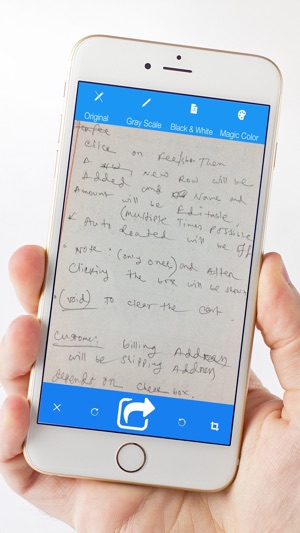 Original Gray Scale Black & White Magic Color
Click on Then
A New Row will be
Added and Name and
Amount will be Editable
(multiple Times Possible
& Auto will be Off
Note (only once) and After
Clicking the box will be shown
(void) To clear the cart.
Customer: billing Address
will be shipping Address
dependent on check box.